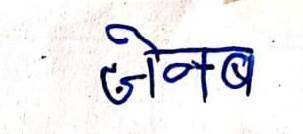 जेनब